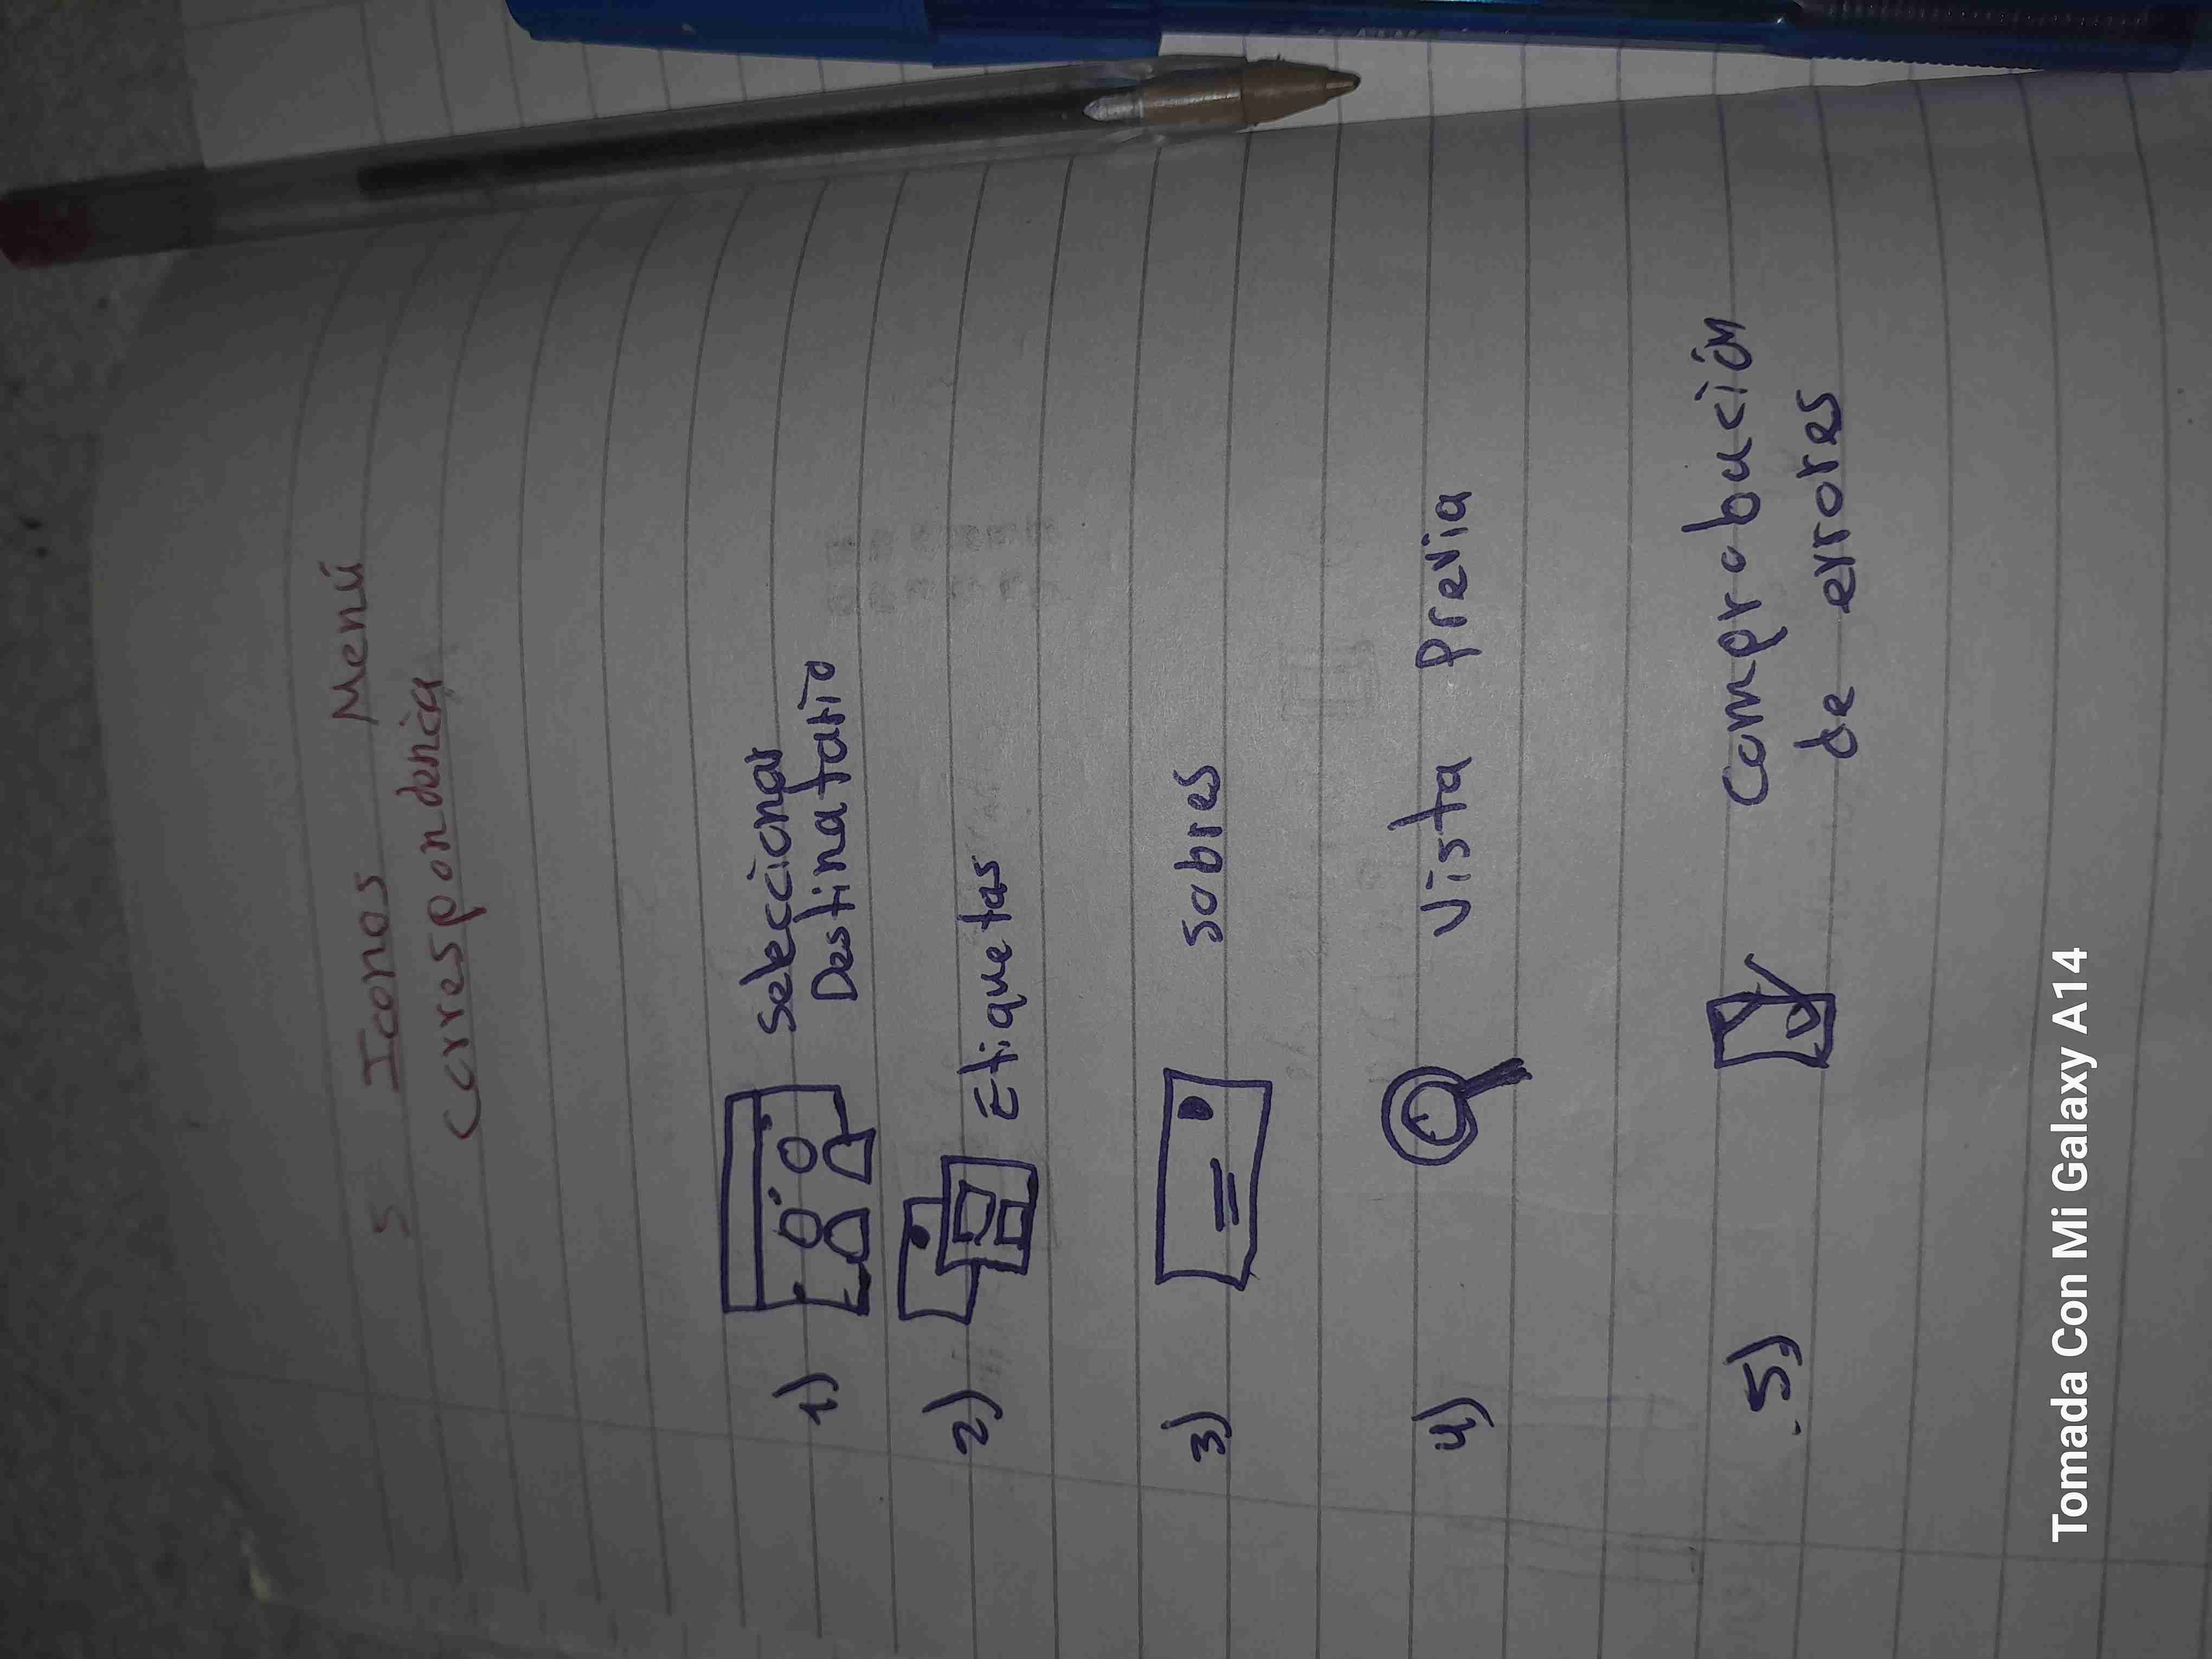 5 Iconos Menú
Correspondencia
1) Seleccionar
Destinatario
2) Etiquetas
3) sobres
4) Vista previa
5) Comprobación
de errores
Tomada Con Mi Galaxy A14